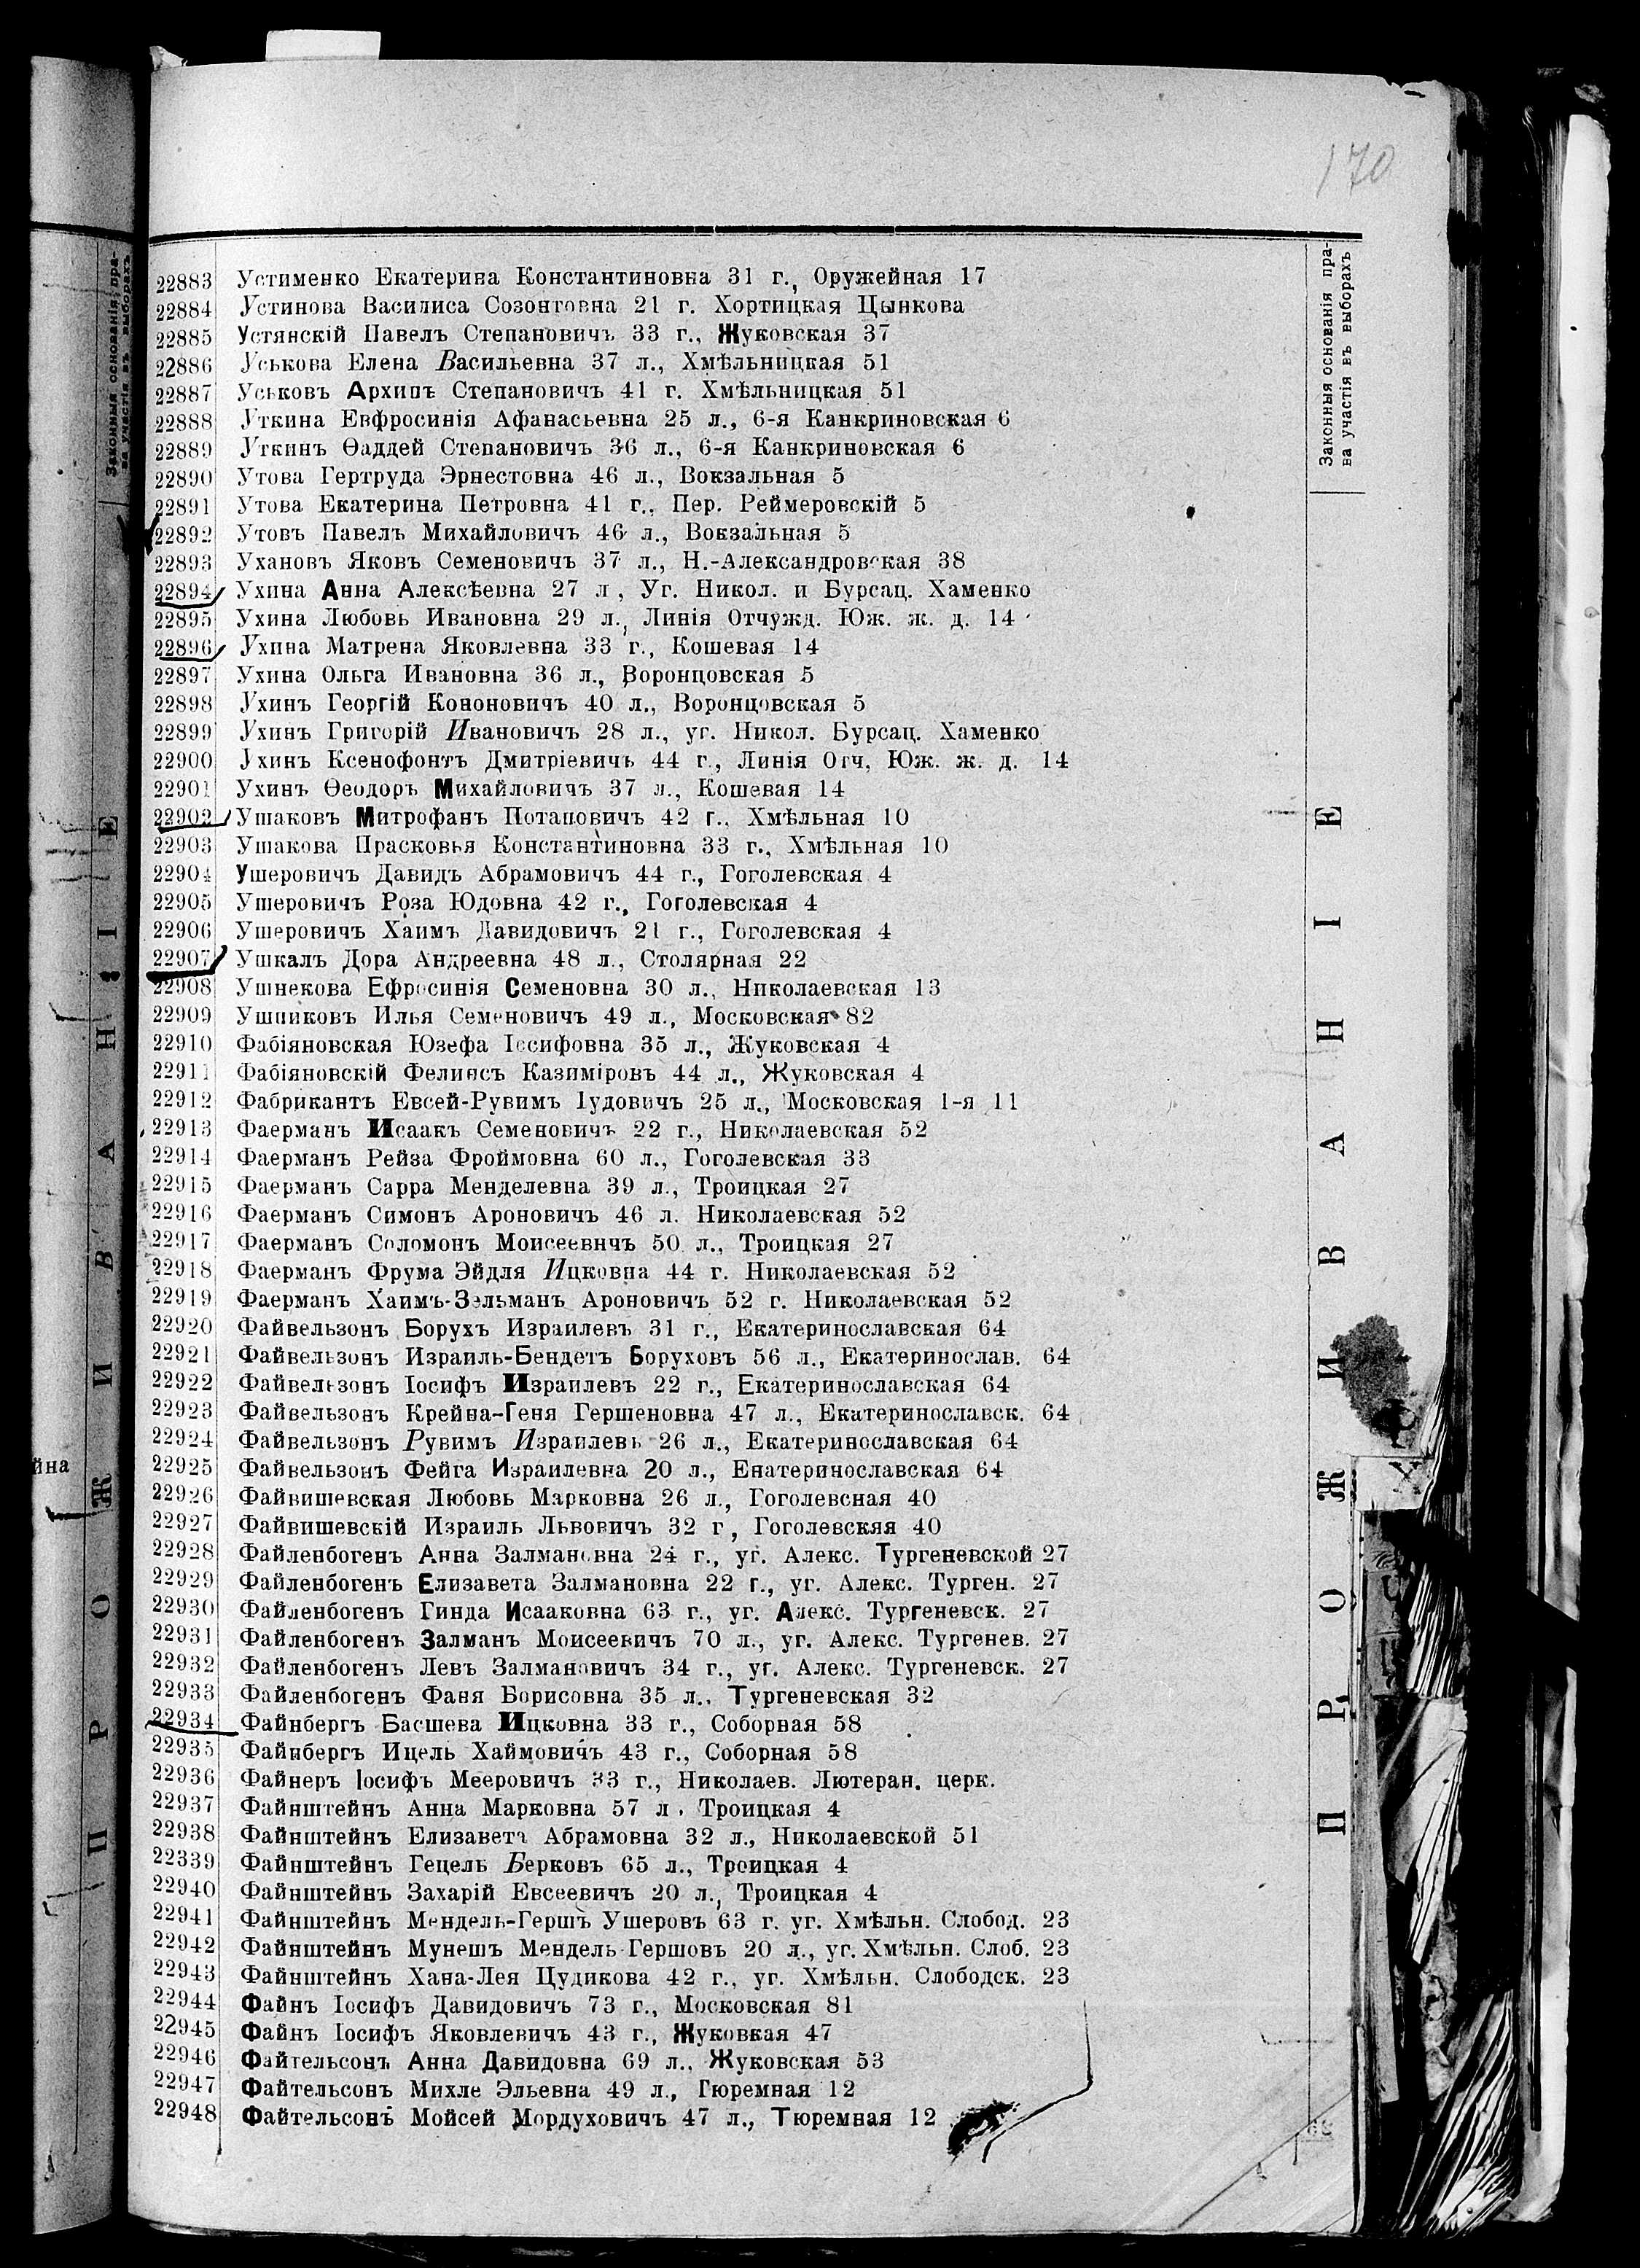 170
Законныя основанія пра-
ва участія въ выборахъ
22883 Устименко Екатерина Константиновна 31 г., Оружейная 17
22884 Устинова Василиса Созонтовна 21 г. Хортицкая Цынкова
22885 Устянскій Павелъ Степановичъ 33 г., Жуковская 37
22886 Уськова Елена Васильевна 37 л., Хмѣльницкая 51
22887 Уськовъ Архипъ Степановичъ 41 г. Хмѣльницкая 51
22888 Уткина Евфросинія Афанасьевна 25 л., 6-я Канкриновская 6
22889 Уткинъ Ѳаддей Степановичъ 36 л., 6-я Канкриновская 6
22890 Утова Гертруда Эрнестовна 46 л., Вокзальная 5
22891 Утова Екатерина Петровна 41 г., Пер. Реймеровскій 5
22892 Утовъ Павелъ Михайловичъ 46 л., Вокзальная 5
22893 Ухановъ Яковъ Семеновичъ 37 л., Н.-Александровская 38
22894 Ухина Анна Алексѣевна 27 л, Уг. Никол. и Бурсац. Хаменко
22895 Ухина Любовь Ивановна 29 л., Линія Отчужд. Юж. ж. д. 14
22896 Ухина Матрена Яковлевна 33 г., Кошевая 14
22897 Ухина Ольга Ивановна 36 л., Воронцовская 5
22898 Ухинъ Георгій Кононовичъ 40 л., Воронцовская 5
22899 Ухинъ Григорій Ивановичъ 28 л., уг. Никол. Бурсац. Хаменко
22900 Ухинъ Ксенофонтъ Дмитріевичъ 44 г., Линія Отч, Юж. ж. д. 14
22901 Ухинъ Ѳеодоръ Михайловичъ 37 л., Кошевая 14
22902 Ушаковъ Митрофанъ Потаповичъ 42 г., Хмѣльная 10
22903 Ушакова Прасковья Константиновна 33 г., Хмѣльная 10
22904 Ушеровичъ Давидъ Абрамовичъ 44 г., Гоголевская 4
22905 Ушеровичъ Роза Юдовна 42 г., Гоголевская 4
22906 Ушеровичъ Хаимъ Давидовичъ 21 г., Гоголевская 4
22907 Ушкалъ Дора Андреевна 48 л., Столярная 22
22908 Ушнекова Ефросинія Семеновна 30 л., Николаевская 13
22909 Ушниковъ Илья Семеновичъ 49 л., Московская 82
22910 Фабіяновская Юзефа Іосифовна 35 л., Жуковская 4
22911 Фабіяновскій Феликсъ Казиміровъ 44 л., Жуковская 4
22912 Фабрикантъ Евсей-Рувимъ Іудовичъ 25 л., Московская 1-я 11
22913 Фаерманъ Исаакъ Семеновичъ 22 г., Николаевская 52
22914 Фаерманъ Рейза Фроймовна 60 л., Гоголевская 33
22915 Фаерманъ Сарра Менделевна 39 л., Троицкая 27
22916 Фаерманъ Симонъ Ароновичъ 46 л. Николаевская 52
22917 Фаерманъ Соломонъ Моисеевичъ 50 л., Троицкая 27
22918 Фаерманъ Фрума Эйдля Ицковна 44 г. Николаевская 52
22919 Фаерманъ Хаимъ-Зельманъ Ароновичъ 52 г. Николаевская 52
22920 Файвельзонъ Борухъ Израилевъ 31 г., Екатеринославская 64
22921 Файвельзонъ Израиль-Бендетъ Боруховъ 56 л., Екатеринослав. 64
22922 Файвельзонъ Іосифъ Израилевъ 22 г., Екатеринославская 64
22923 Файвельзонъ Крейна-Геня Гершеновна 47 л., Екатеринославск. 64
22924 Файвельзонъ Рувимъ Израилевъ 26 л., Екатеринославская 64
22925 Файвельзонъ Фейга Израилевна 20 л., Енатеринославская 64
22926 Файвишевская Любовь Марковна 26 л., Гоголевсная 40
22927 Файвишевскій Израиль Львовичъ 32 г, Гоголевскяя 40
22928 Файленбогенъ Анна Залмановна 24 г., уг. Алекс. Тургеневской 27
22929 Файленбогенъ Елизавета Залмановна 22 г., уг. Алекс. Турген. 27
22930 Файленбогенъ Гинда Исааковна 63 г., уг. Алекс. Тургеневск. 27
22931 Файленбогенъ Залманъ Моисеевичъ 70 л., уг. Алекс. Тургенев. 27
22932 Файленбогенъ Левъ Залмановичъ 34 г., уг. Алекс. Тургеневск. 27
22933 Файленбогенъ Фаня Борисовна 35 л., Тургеневская 32
22934 Файнбергъ Басшева Ицковна 33 г., Соборная 58
22935 Файнбергъ Ицель Хаймовичъ 43 г., Соборная 58
22936 Файнеръ Іосифъ Мееровичъ 33 г., Николаев. Лютеран. церк.
22937 Файнштейнъ Анна Марковна 57 л. Троицкая 4
22938 Файнштейнъ Елизавета Абрамовна 32 л., Николаевской 51
22339 Файнштейнъ Гецель Берковъ 65 л., Троицкая 4
22940 Файнштейнъ Захарій Евсеевичъ 20 л., Троицкая 4
22941 Файнштейнъ Мендель-Гершъ Ушеровъ 63 г. уг. Хмѣльн. Слобод. 23
22942 Файнштейнъ Мунешъ Мендель-Гершовъ 20 л., уг. Хмѣльн. Слоб. 23
22943 Файнштейнъ Хана-Лея Цудикова 42 г., уг. Хмѣльн. Слободск. 23
22944 Файнъ Іосифъ Давидовичъ 73 г., Московская 81
22945 Файнъ Іосифъ Яковлевичъ 43 г., Жуковкая 47
22946 Файтельсонъ Анна Давидовна 69 л., Жуковская 53
22947 Файтельсонъ Михле Эльевна 49 л., Тюремная 12
22948 Файтельсонъ Мойсей Мордуховичъ 47 л., Тюремная 12
ПРОЖИВАНІЕ
Законныя основанія пра-
ва участія въ выборахъ
ПРОЖИВАНІЕ